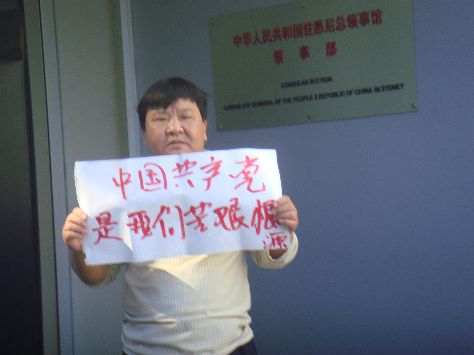 中华人民共和国驻悉尼总领事馆
领事部
CONSULAR SECTION
CONSULATE GENERAL OF THE PEOPLE'S REPUBLIC OF CHINA IN SYDNEY
中国共产党
是我们苦难根
源